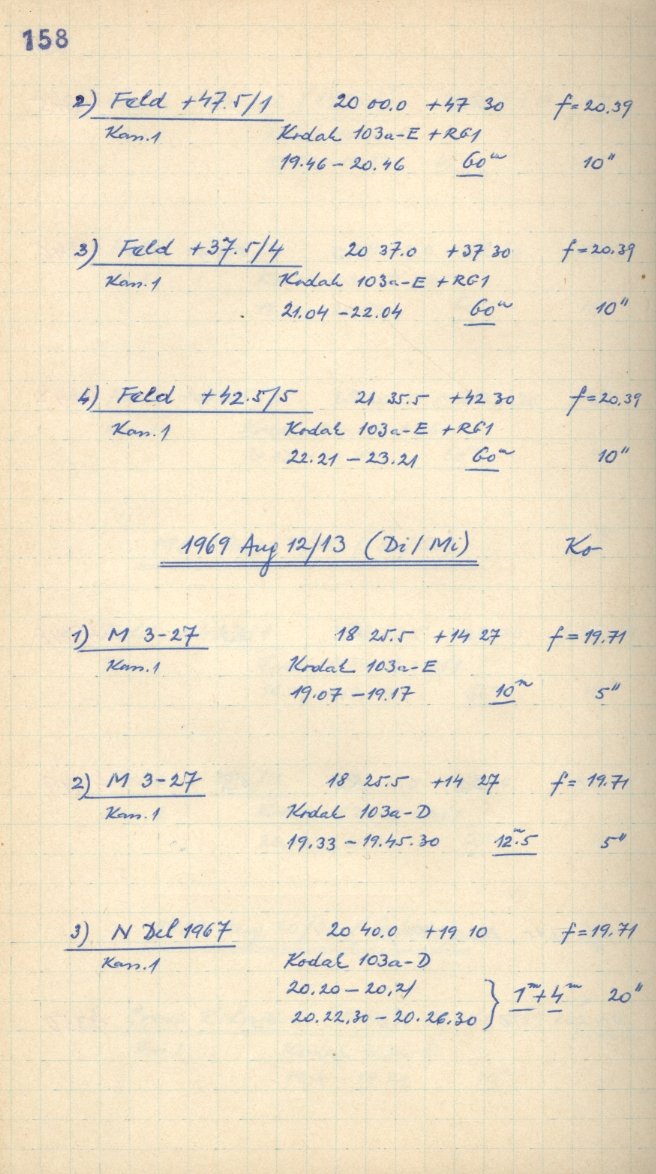 158
2) Feld +47.5/1 20 00.0 +47 30 f=20.39
Kass.1 Kodak 103a-E +RG1
19.46 – 20.46 60ᵐ 10"
3) Feld +37.5/4 20 37.0 +37 30 f=20.39
Kass.1 Kodak 103a-E +RG1
21.04 – 22.04 60ᵐ 10"
4) Feld +42.5/5 21 35.5 +42 30 f=20.39
Kass.1 Kodak 103a-E +RG1
22.21 – 23.21 60ᵐ 10"
1969 Aug 12/13 (Di/Mi) Ko
1) M 3-27 18 25.5 +14 27 f=19.71
Kass.1 Kodak 103a-E
19.07 – 19.17 10ᵐ 5"
2) M 3-27 18 25.5 +14 27 f=19.71
Kass.1 Kodak 103a-D
19.33 – 19.45.30 12ᵐ.5 5"
3) N Del 1967 20 40.0 +19 10 f=19.71
Kass.1 Kodak 103a-D
20.20 – 20.21
20.22.30 – 20.26.30 } 1ᵐ+4ᵐ 20"